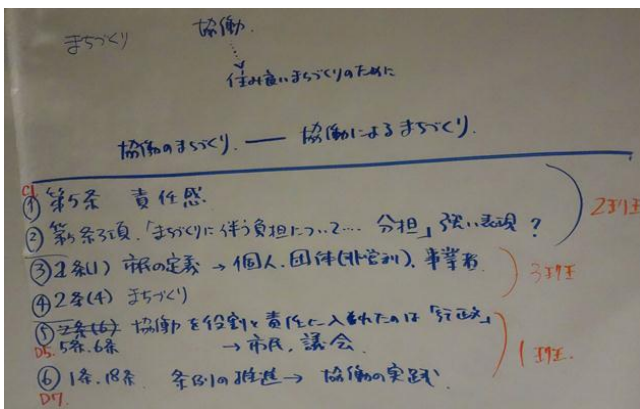 まちづくり 協働
住み良いまちづくりのために
協働のまちづくり. ― 協働によるまちづくり.
C1
① 第5条 責任感
② 第5条3項.「まちづくりに伴う負担について… 分担」強い表現?
③ 2条(1) 市民の定義 → 個人.団体(非営利).事業者
④ 2条(4) まちづくり
⑤ 2条(6) 協働を役割と責任に入れたのは「行政」
D5. 5条.6条 → 市民.議会.
⑥ 1条.18条. 条例の推進→ 協働の実践
D7.